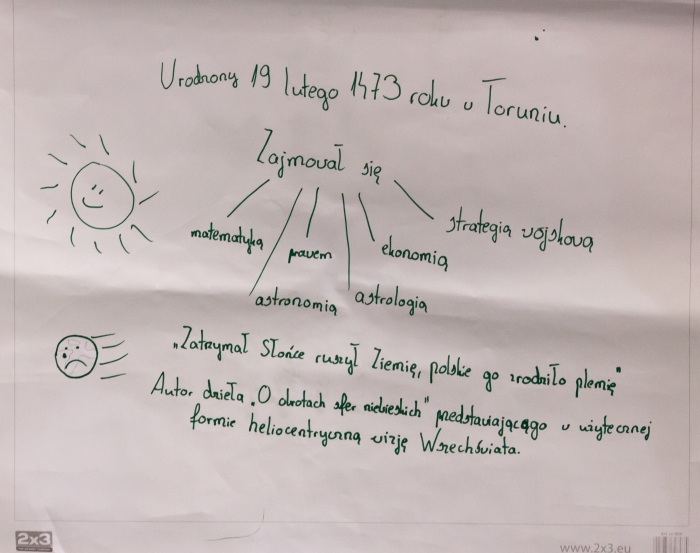 Urodzony 19 lutego 1473 roku w Toruniu.
Zajmował się
matematyką
prawem
ekonomią
strategią wojskową
astronomią
astrologią
„Zatrzymał Słońce ruszył Ziemię, polskie go zrodziło plemię"
Autor dzieła „O obrotach sfer niebieskich" przedstawiającego w użytecznej
formie heliocentryczną wizję Wszechświata.
2x3
www.2x3.eu